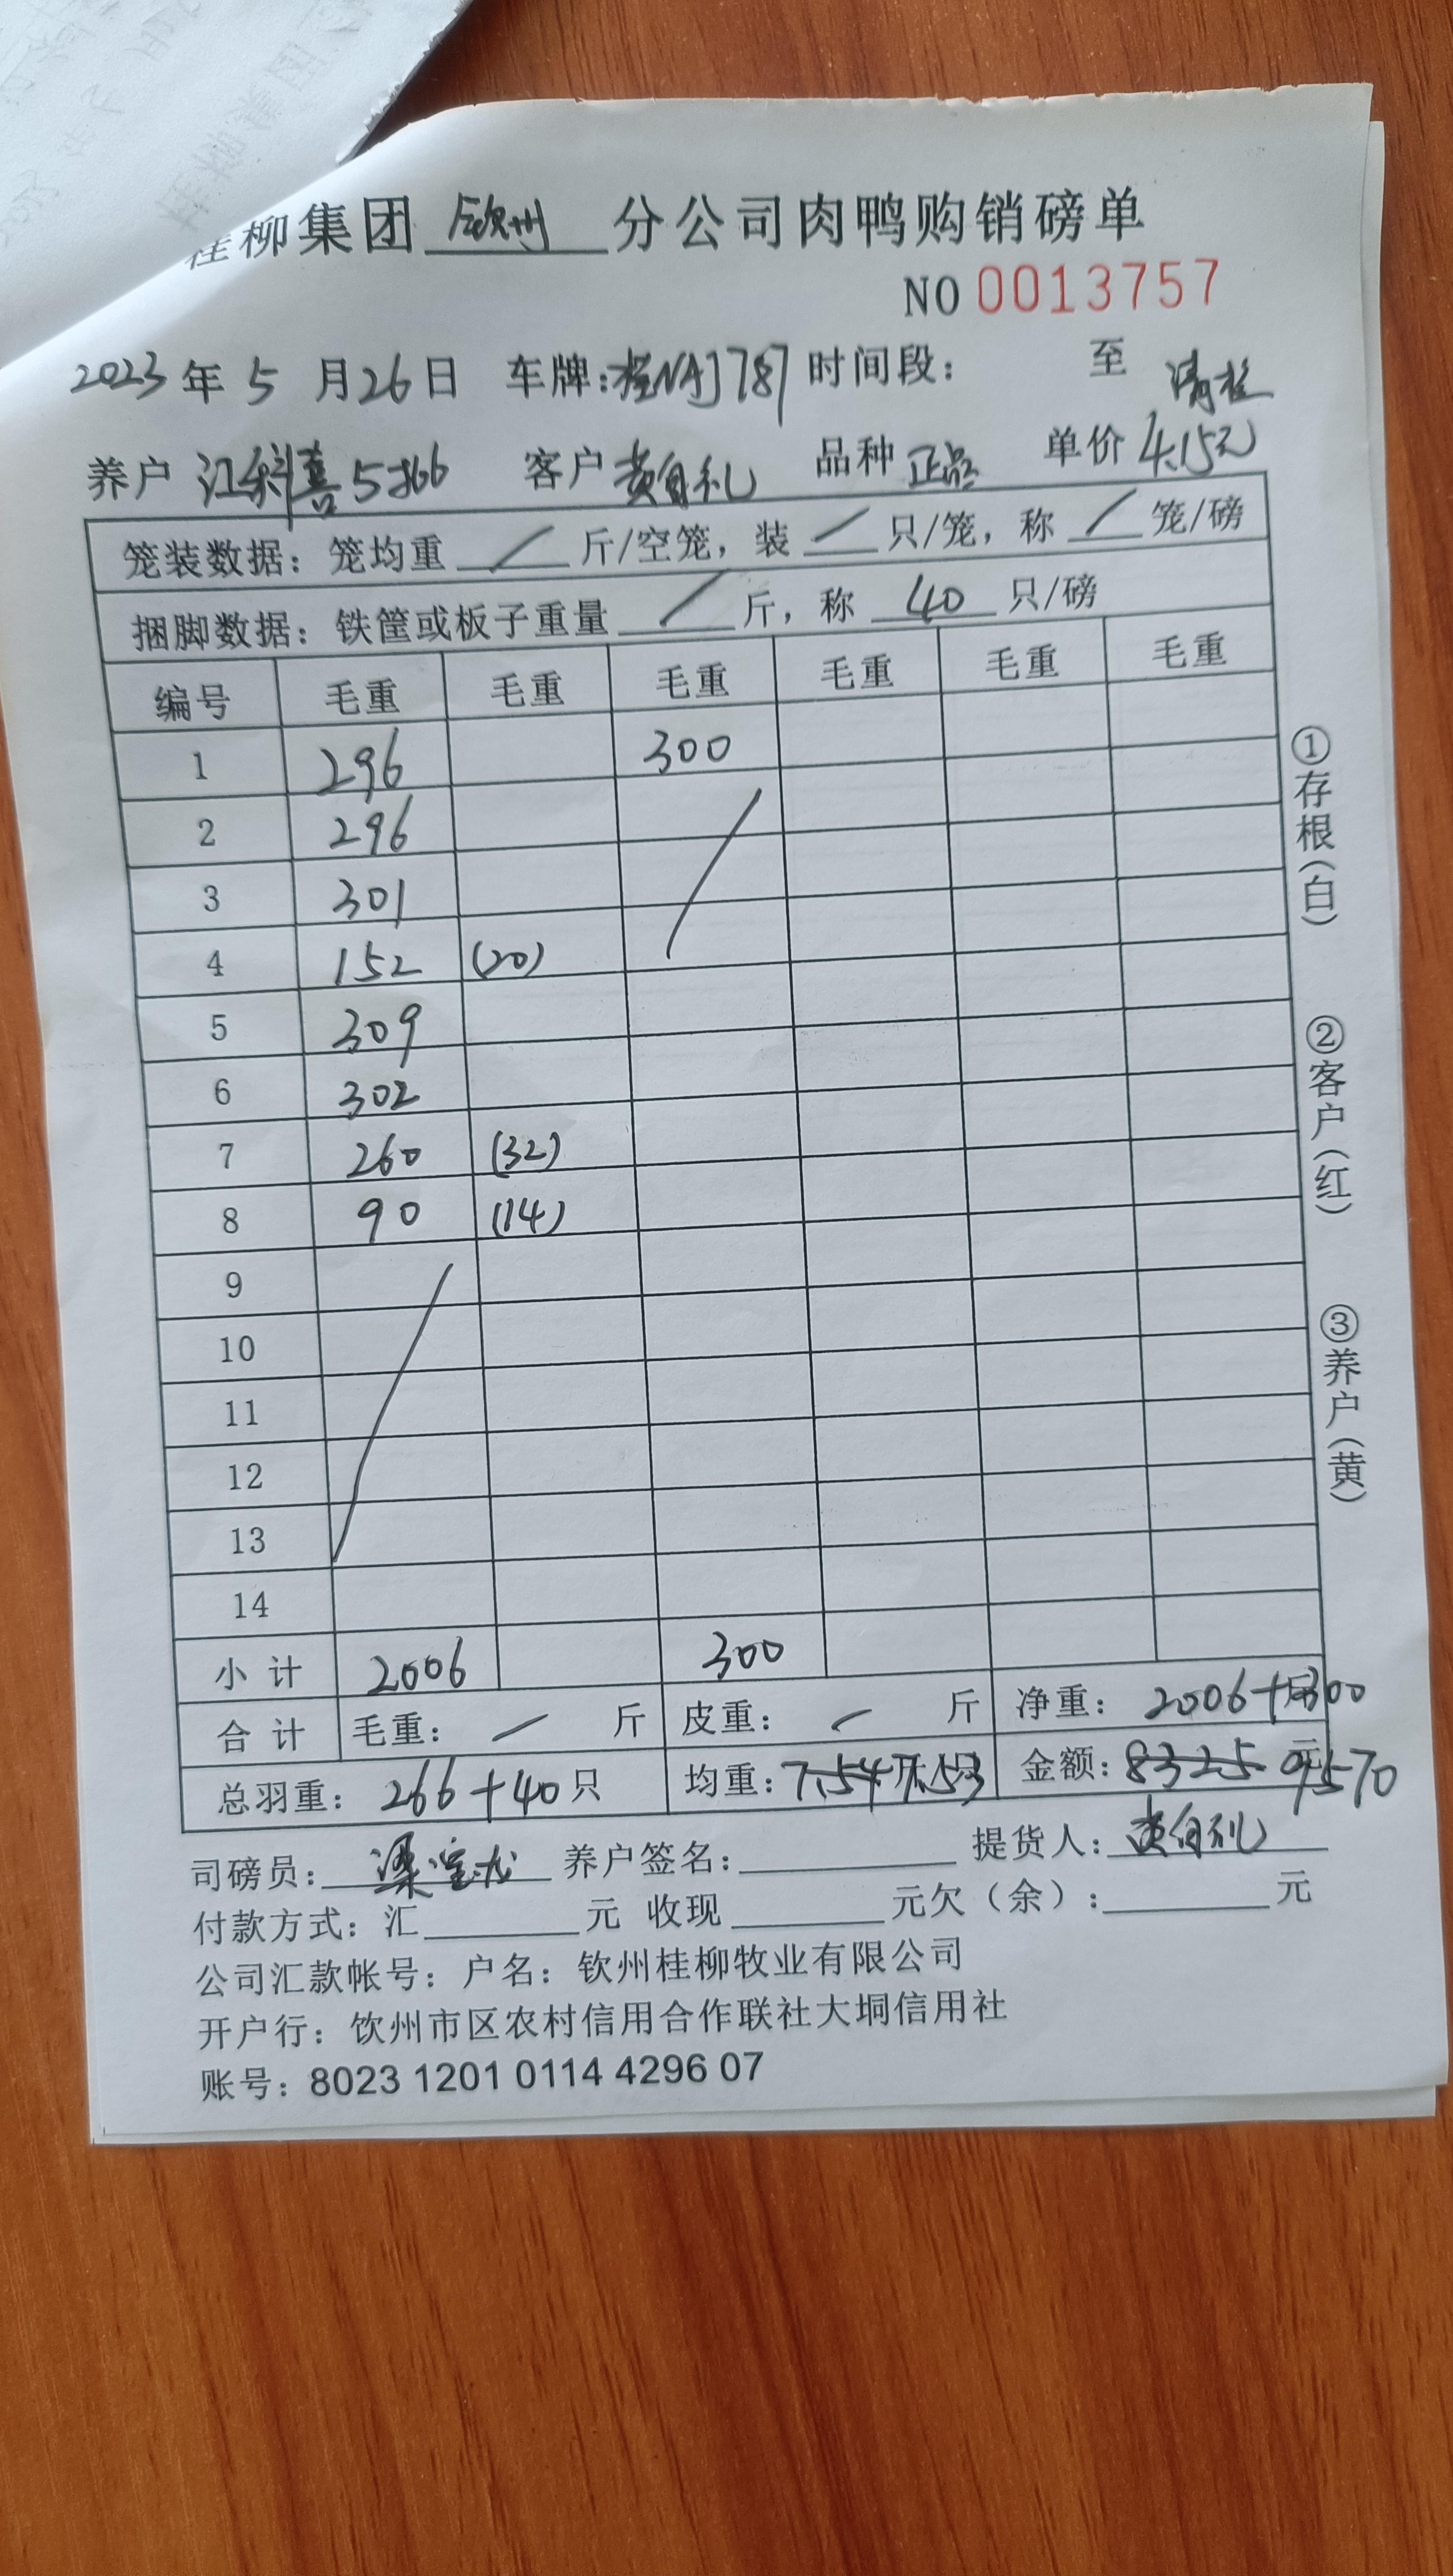 桂柳集团 钦州 分公司肉鸭购销磅单
NO 0013757
2023年5月26日 车牌:桂NAJ787 时间段: 至 清栏
养户 江科喜5366 客户 黄自礼 品种 正品 单价 4.15元
笼装数据: 笼均重 / 斤/空笼, 装 / 只/笼, 称 / 笼/磅
捆脚数据: 铁筐或板子重量 / 斤, 称 40 只/磅
编号 毛重 毛重 毛重 毛重 毛重 毛重
1 296 300
2 296
3 301
4 152 (20)
5 309
6 302
7 260 (32)
8 90 (14)
9
10
11
12
13
14
小 计 2006 300
合 计 毛重: / 斤 皮重: / 斤 净重: 2006+300
总羽重: 266+40只 均重: 7.54 7.53 金额: 8325 元 9570
司磅员: 梁宝龙 养户签名: 提货人: 黄自礼
付款方式: 汇 元 收现 元欠(余): 元
公司汇款帐号: 户名: 钦州桂柳牧业有限公司
开户行: 饮州市区农村信用合作联社大垌信用社
账号: 8023 1201 0114 4296 07
①存根(白)
②客户(红)
③养户(黄)